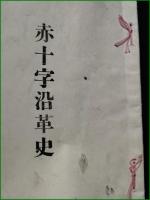 赤十字沿革史